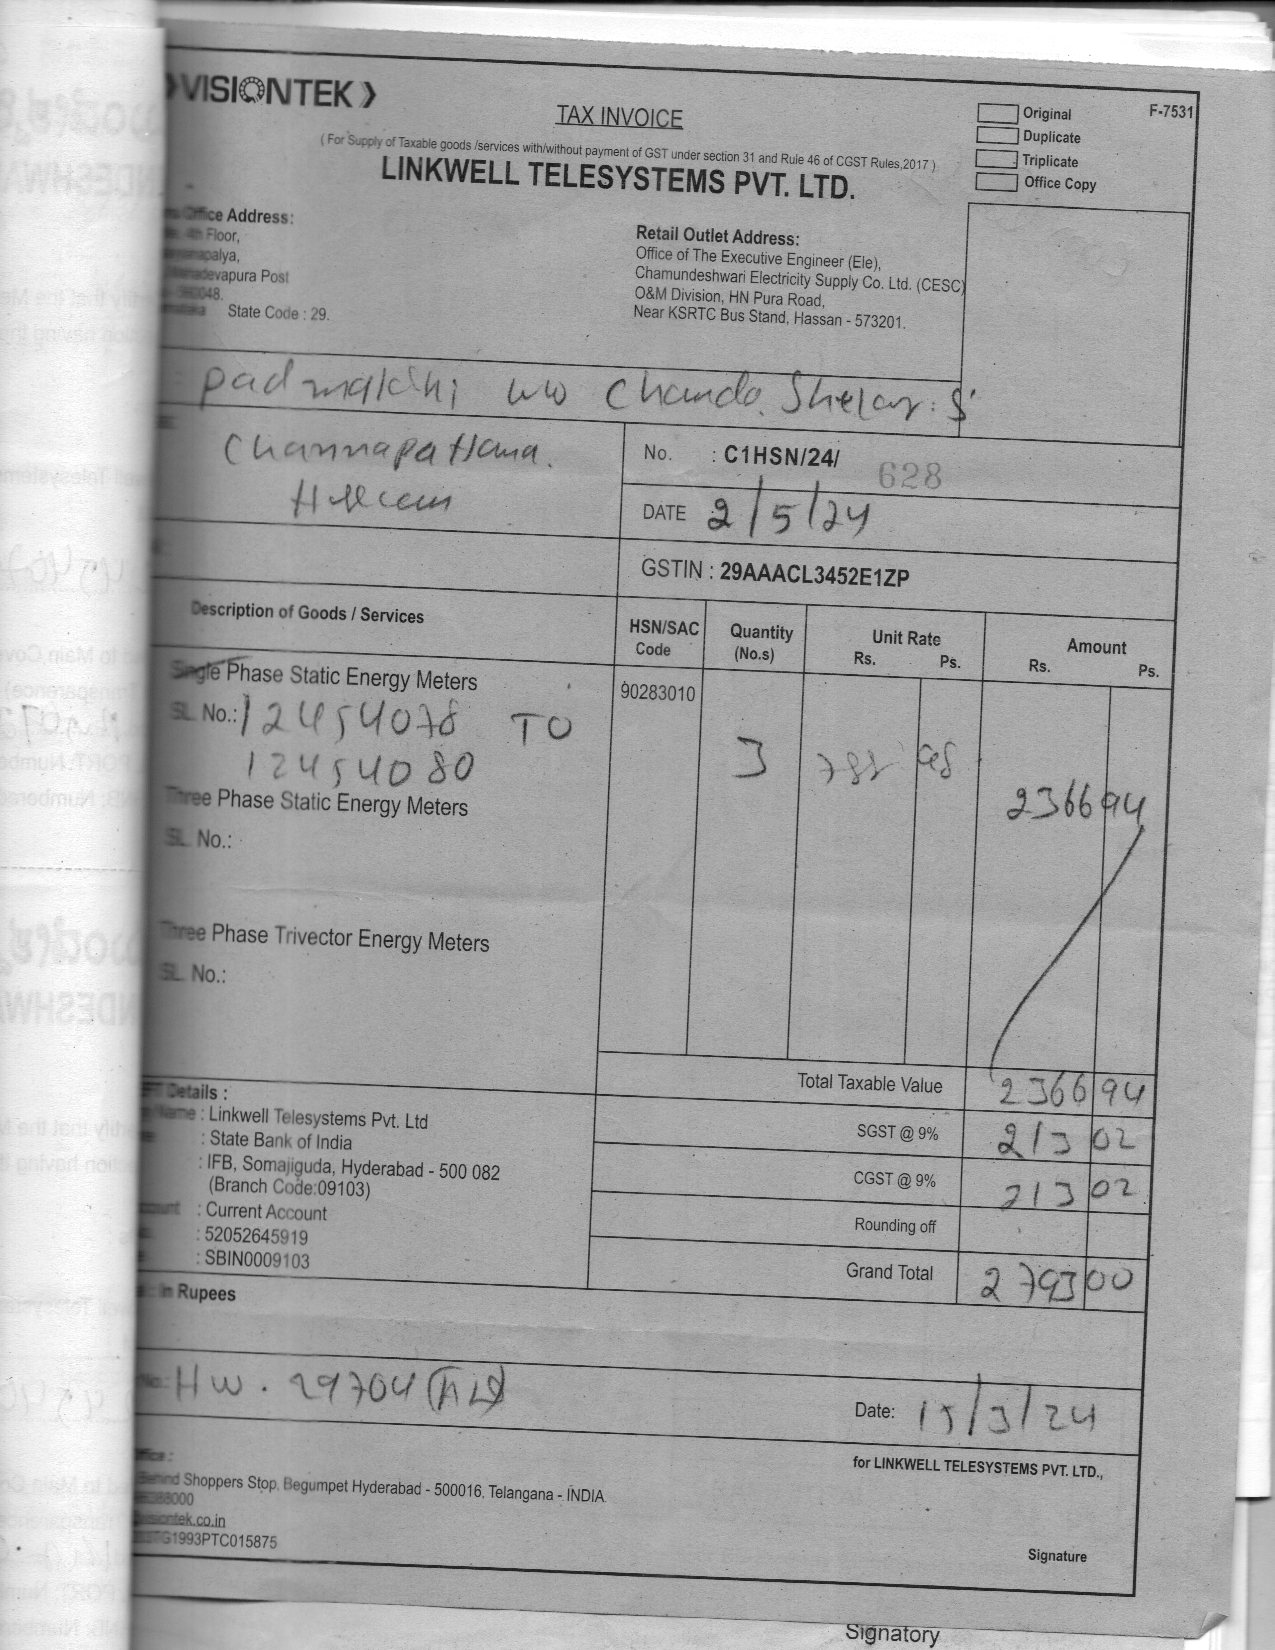 VISIONTEK
TAX INVOICE
Original
F-7531
Duplicate
Triplicate
Office Copy
( For Supply of Taxable goods /services with/without payment of GST under section 31 and Rule 46 of CGST Rules,2017 )
LINKWELL TELESYSTEMS PVT. LTD.
Office Address:
4th Floor,
devapura Post
State Code : 29.
Retail Outlet Address:
Office of The Executive Engineer (Ele),
Chamundeshwari Electricity Supply Co. Ltd. (CESC)
O&M Division, HN Pura Road,
Near KSRTC Bus Stand, Hassan - 573201.
w/o Chandra Shekar. S
Channapattana.
No. : C1HSN/24/ 628
DATE 2/5/24
GSTIN : 29AAACL3452E1ZP
Description of Goods / Services
HSN/SAC Code
Quantity (No.s)
Unit Rate
Rs. Ps.
Amount
Rs. Ps.
Single Phase Static Energy Meters
90283010
SL. No.: 12454078 TO
12454080
3
788 98
2366 94
Three Phase Static Energy Meters
SL. No.:
Three Phase Trivector Energy Meters
SL. No.:
Total Taxable Value 2366 94
SGST @ 9% 213 02
CGST @ 9% 213 02
Rounding off
Grand Total 2793 00
Details :
Name : Linkwell Telesystems Pvt. Ltd
: State Bank of India
: IFB, Somajiguda, Hyderabad - 500 082
(Branch Code:09103)
: Current Account
: 52052645919
: SBIN0009103
in Rupees
No.: HW. 29704
Date: 15/3/24
for LINKWELL TELESYSTEMS PVT. LTD.,
Behind Shoppers Stop, Begumpet Hyderabad - 500016, Telangana - INDIA
visiontek.co.in
TG1993PTC015875
Signature
Signatory